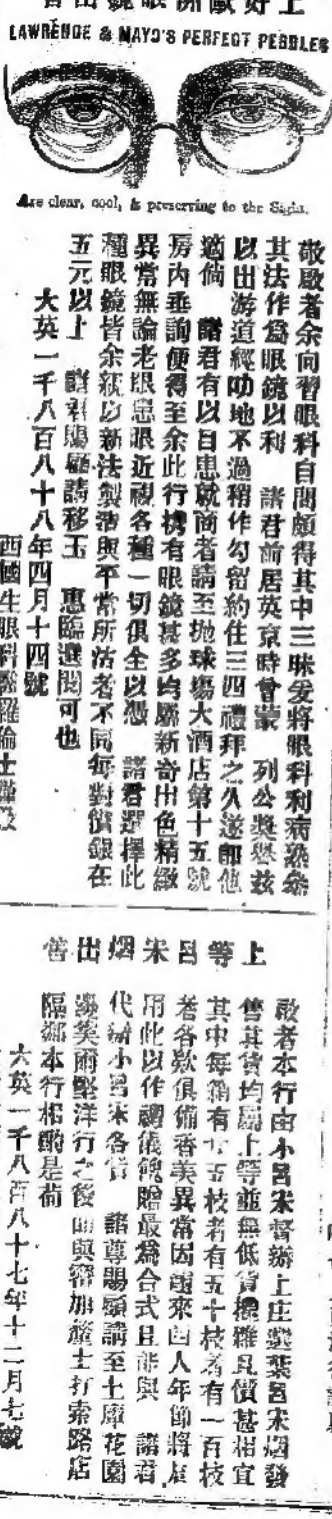 上好歐洲眼鏡出售
LAWRENCE & MAYO'S PERFECT PEBBLES
Are clear, cool, & preserving to the Sight.
敬啟者余向習眼科自問頗得其中三昧爰將眼科利病熟參
其法作爲眼鏡以利 諸君前居英京時曾蒙 列公獎譽茲
以出游道經叻地不過稍作勾留約住三四禮拜之久遂卽他
適倘 諸君有以目患就商者請至拋球塲大酒店第十五號
房內垂詢便得至余此行攜有眼鏡甚多均屬新奇出色精緻
異常無論老眼患眼近視各種一切俱全以憑 諸君選擇此
種眼鏡皆余親以新法製造與平常所沽者不同每對價銀在
五元以上 諸君賜顧請移玉 惠臨選閱可也
大英一千八百八十八年四月十四號
西國生眼科醫羅倫士
上等呂宋烟出售
啟者本行由小呂宋督辦上庄奬葉呂宋烟發
售其貨均屬上等並無低貨攙雜且價甚相宜
其中每箱有廿五枝者有五十枝者有一百枝
者各欵俱備香美異常因邇來西人年節將屆
用此以作禮儀餽贈最爲合式且能與 諸君
代辦小呂宋各貨 諸尊賜顧請至土庫花園
後 洋行之後面與 打索路店
隔鄰本行相酌是荷
大英一千八百八十七年十二月七號